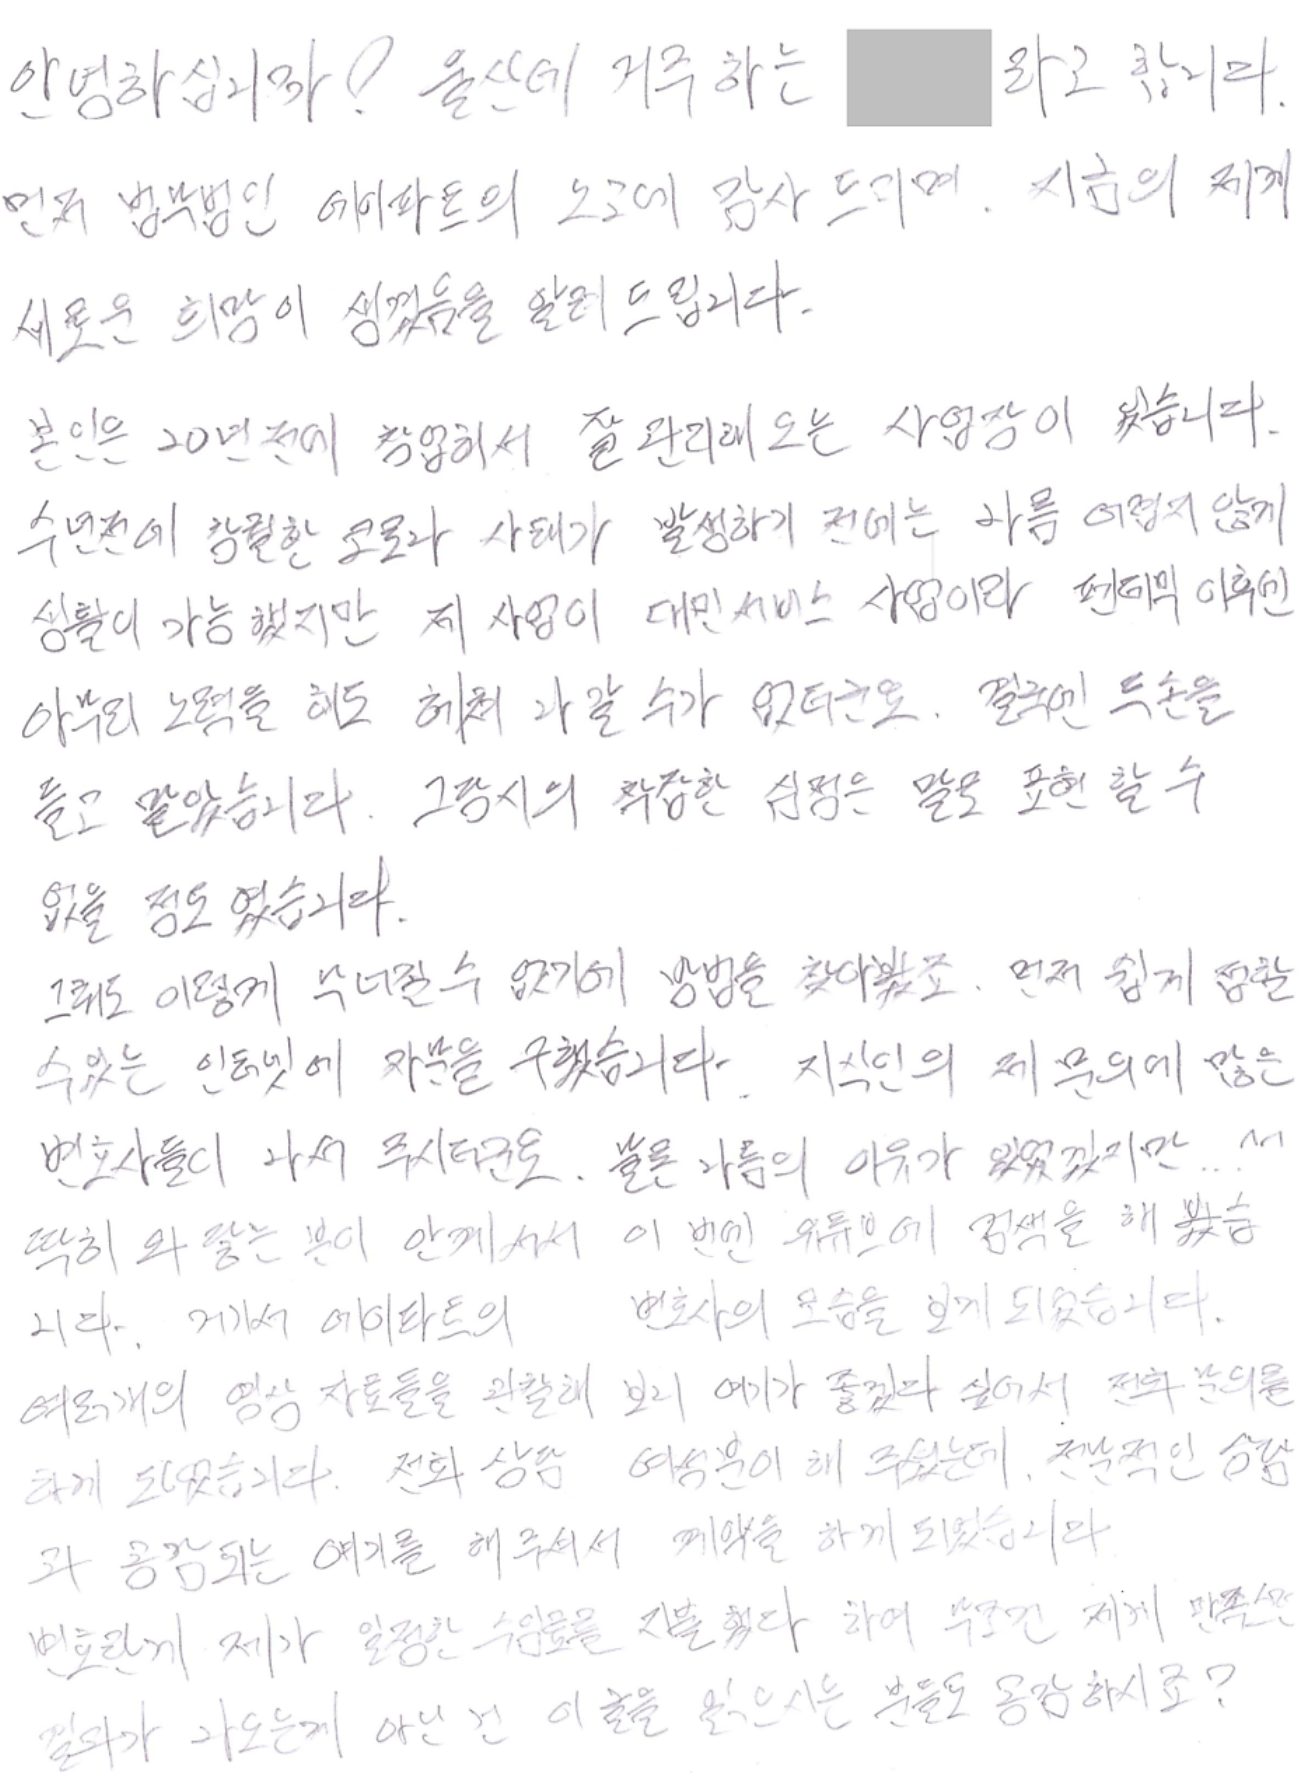 안녕하십니까? 울산에 거주 하는 라고 합니다.
먼저 법무법인 에이파트의 노고에 감사 드리며. 지금의 제게
새로운 희망이 생겼음을 알려 드립니다.
본인은 20년전에 창업해서 잘 관리해 오는 사업장이 있습니다.
수년전에 창궐한 코로나 사태가 발생하기 전에는 나름 어렵지 않게
생활이 가능했지만 제 사업이 대민서비스 사업이라 펜데믹 이후엔
아무리 노력을 해도 헤쳐 나갈 수가 없더군요. 결국엔 두손을
들고 말았습니다. 그당시의 착잡한 심정은 말로 표현 할 수
없을 정도 였습니다.
그래도 이렇게 무너질수 없기에 방법을 찾아봤죠. 먼저 쉽게 접할
수있는 인터넷에 자문을 구했습니다. 지식인의 제 문의에 많은
변호사들이 나서 주시더군요. 물론 나름의 이유가 있었겠지만...
딱히 와 닿는 분이 안계셔서 이 번엔 유튜브에 검색을 해 봤습
니다. 거기서 에이파트의 변호사의 모습을 보게 되었습니다.
여러개의 영상 자료들을 관찰해 보니 여기가 좋겠다 싶어서 전화 문의를
하게 되었습니다. 전화 상담 여성분이 해 주셨는데, 전문적인 상담
과 공감되는 얘기를 해주셔서 계약을 하게 되었습니다
변호란게 제가 일정한 수임료를 지불 했다 하여 무조건 제게 만족스런
결과가 나오는게 아닌 건 이 글을 읽으시는 분들도 공감하시죠?